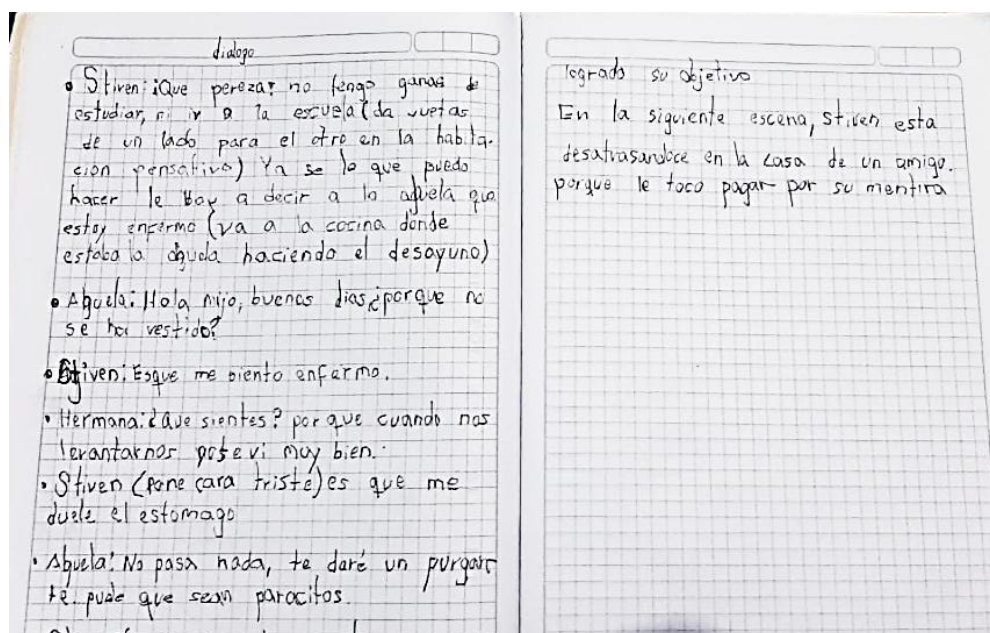 dialogo
• Stiven: ¡Que pereza! no tengo ganas de
estudiar, ni ir a la escuela (da vuetas
de un lado para el otro en la habita-
cion pensativo) Ya se lo que puedo
hacer le boy a decir a la abuela que
estoy enfermo (va a la cocina donde
estaba la abuela haciendo el desayuno)
• Abuela: Hola mijo, buenos dias ¿porque no
se ha vestido?
• Stiven: Esque me siento enfermo.
• Hermana: ¿Que sientes? por que cuando nos
levantarnos yo te vi muy bien.
• Stiven (Pone cara triste) es que me
duele el estomago
• Abuela: No pasa nada, te daré un purgan
te. pude que sean paracitos.
logrado su objetivo
En la siguiente escena, stiven esta
desatrasandoce en la casa de un amigo.
porque le toco pagar por su mentira